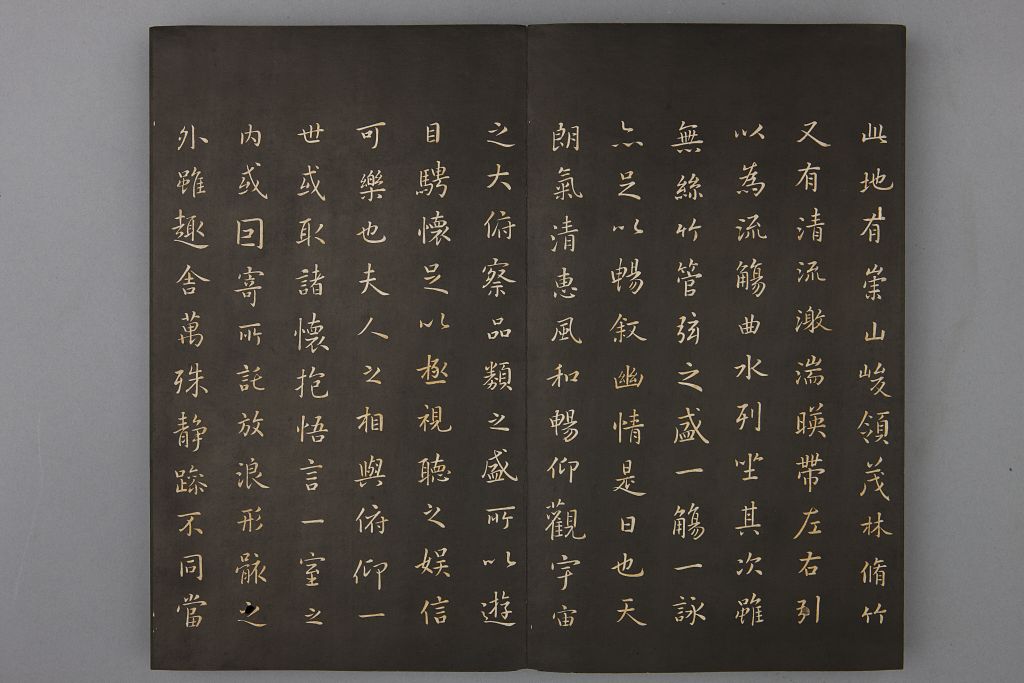 此地有崇山峻領茂林脩竹
又有清流激湍暎帶左右列
以為流觴曲水列坐其次雖
無絲竹管弦之盛一觴一詠
亦足以暢叙幽情是日也天
朗氣清惠風和暢仰觀宇宙
之大俯察品類之盛所以遊
目騁懷足以極視聽之娱信
可樂也夫人之相與俯仰一
世或取諸懷抱悟言一室之
内或因寄所託放浪形骸之
外雖趣舍萬殊静躁不同當